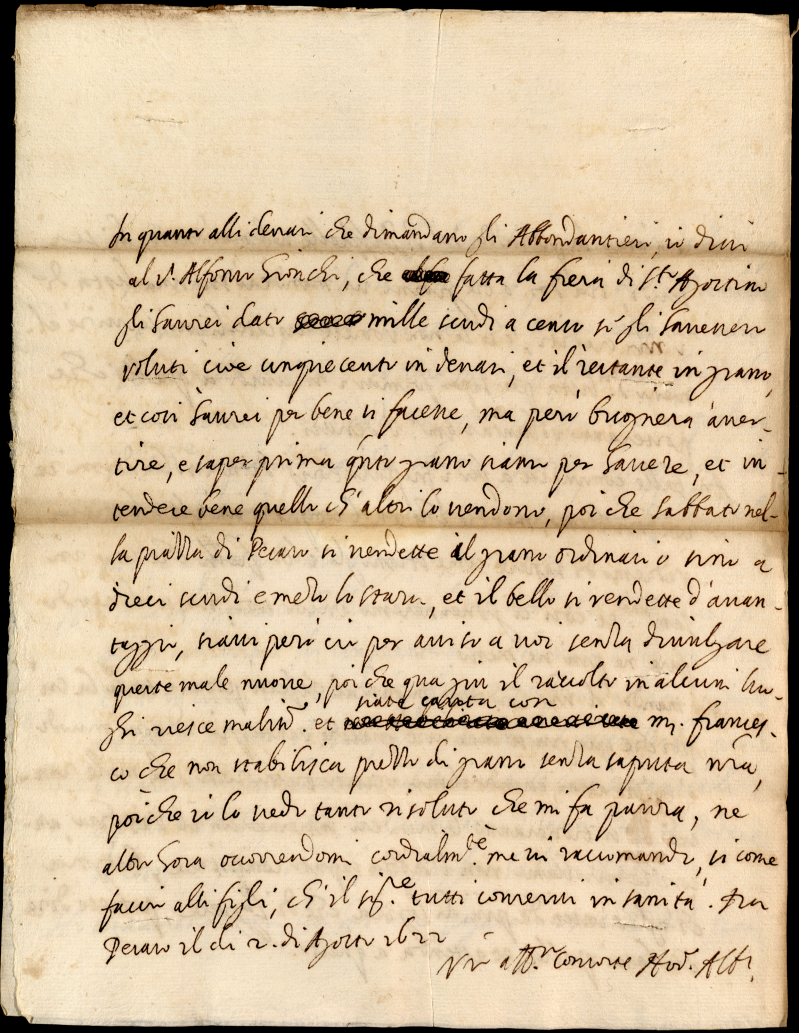 In quanto alli denari che dimandano gli Abbondantieri, io dissi
al s.r Alfonso Gionchi, che fatta la fiera di s.to Agostino
gli haurei dato mille scudi a cento se gli havessero
voluti cioè cinquecento in denari, et il restante in grano,
et così haurei per bene si facesse, ma però bisognerà aver-
tire, e saper prima q.nto grano siamo per havere, et in-
tendere bene quello ch'altri lo vendono, poi che sabbato nel-
la piazza di Pesaro si vendette il grano ordinario sino a
dieci scudi e mezo lo staro, et il bello si vendette d'avan-
taggio, siavi però ciò per aviso a voi senza divulgare
queste male nuove, poi che qua giù il raccolto in alcuni luo-
ghi riesce malissi.o et siate cauta con m. frances-
co che non stabilisca prezzo di grano senza saputa vr̃a,
poiche io lo vedo tanto risoluto che mi fa paura, ne
altro hora occorrendomi cordialm.te me vi raccomando, si come
faccio alli figli, ch'il sig.re tutti conservi in sanità. Da
Pesaro il dì 2. di Agosto 1622
Vr̃o aff.mo consorte Hod. Alb.